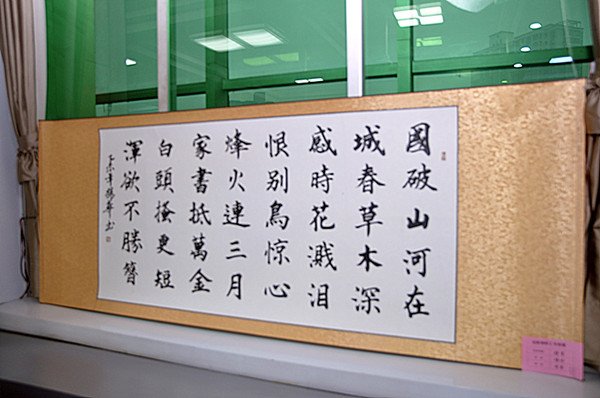 國破山河在
城春草木深
感時花濺泪
恨别鳥惊心
烽火連三月
家書抵萬金
白頭搔更短
渾欲不勝簪